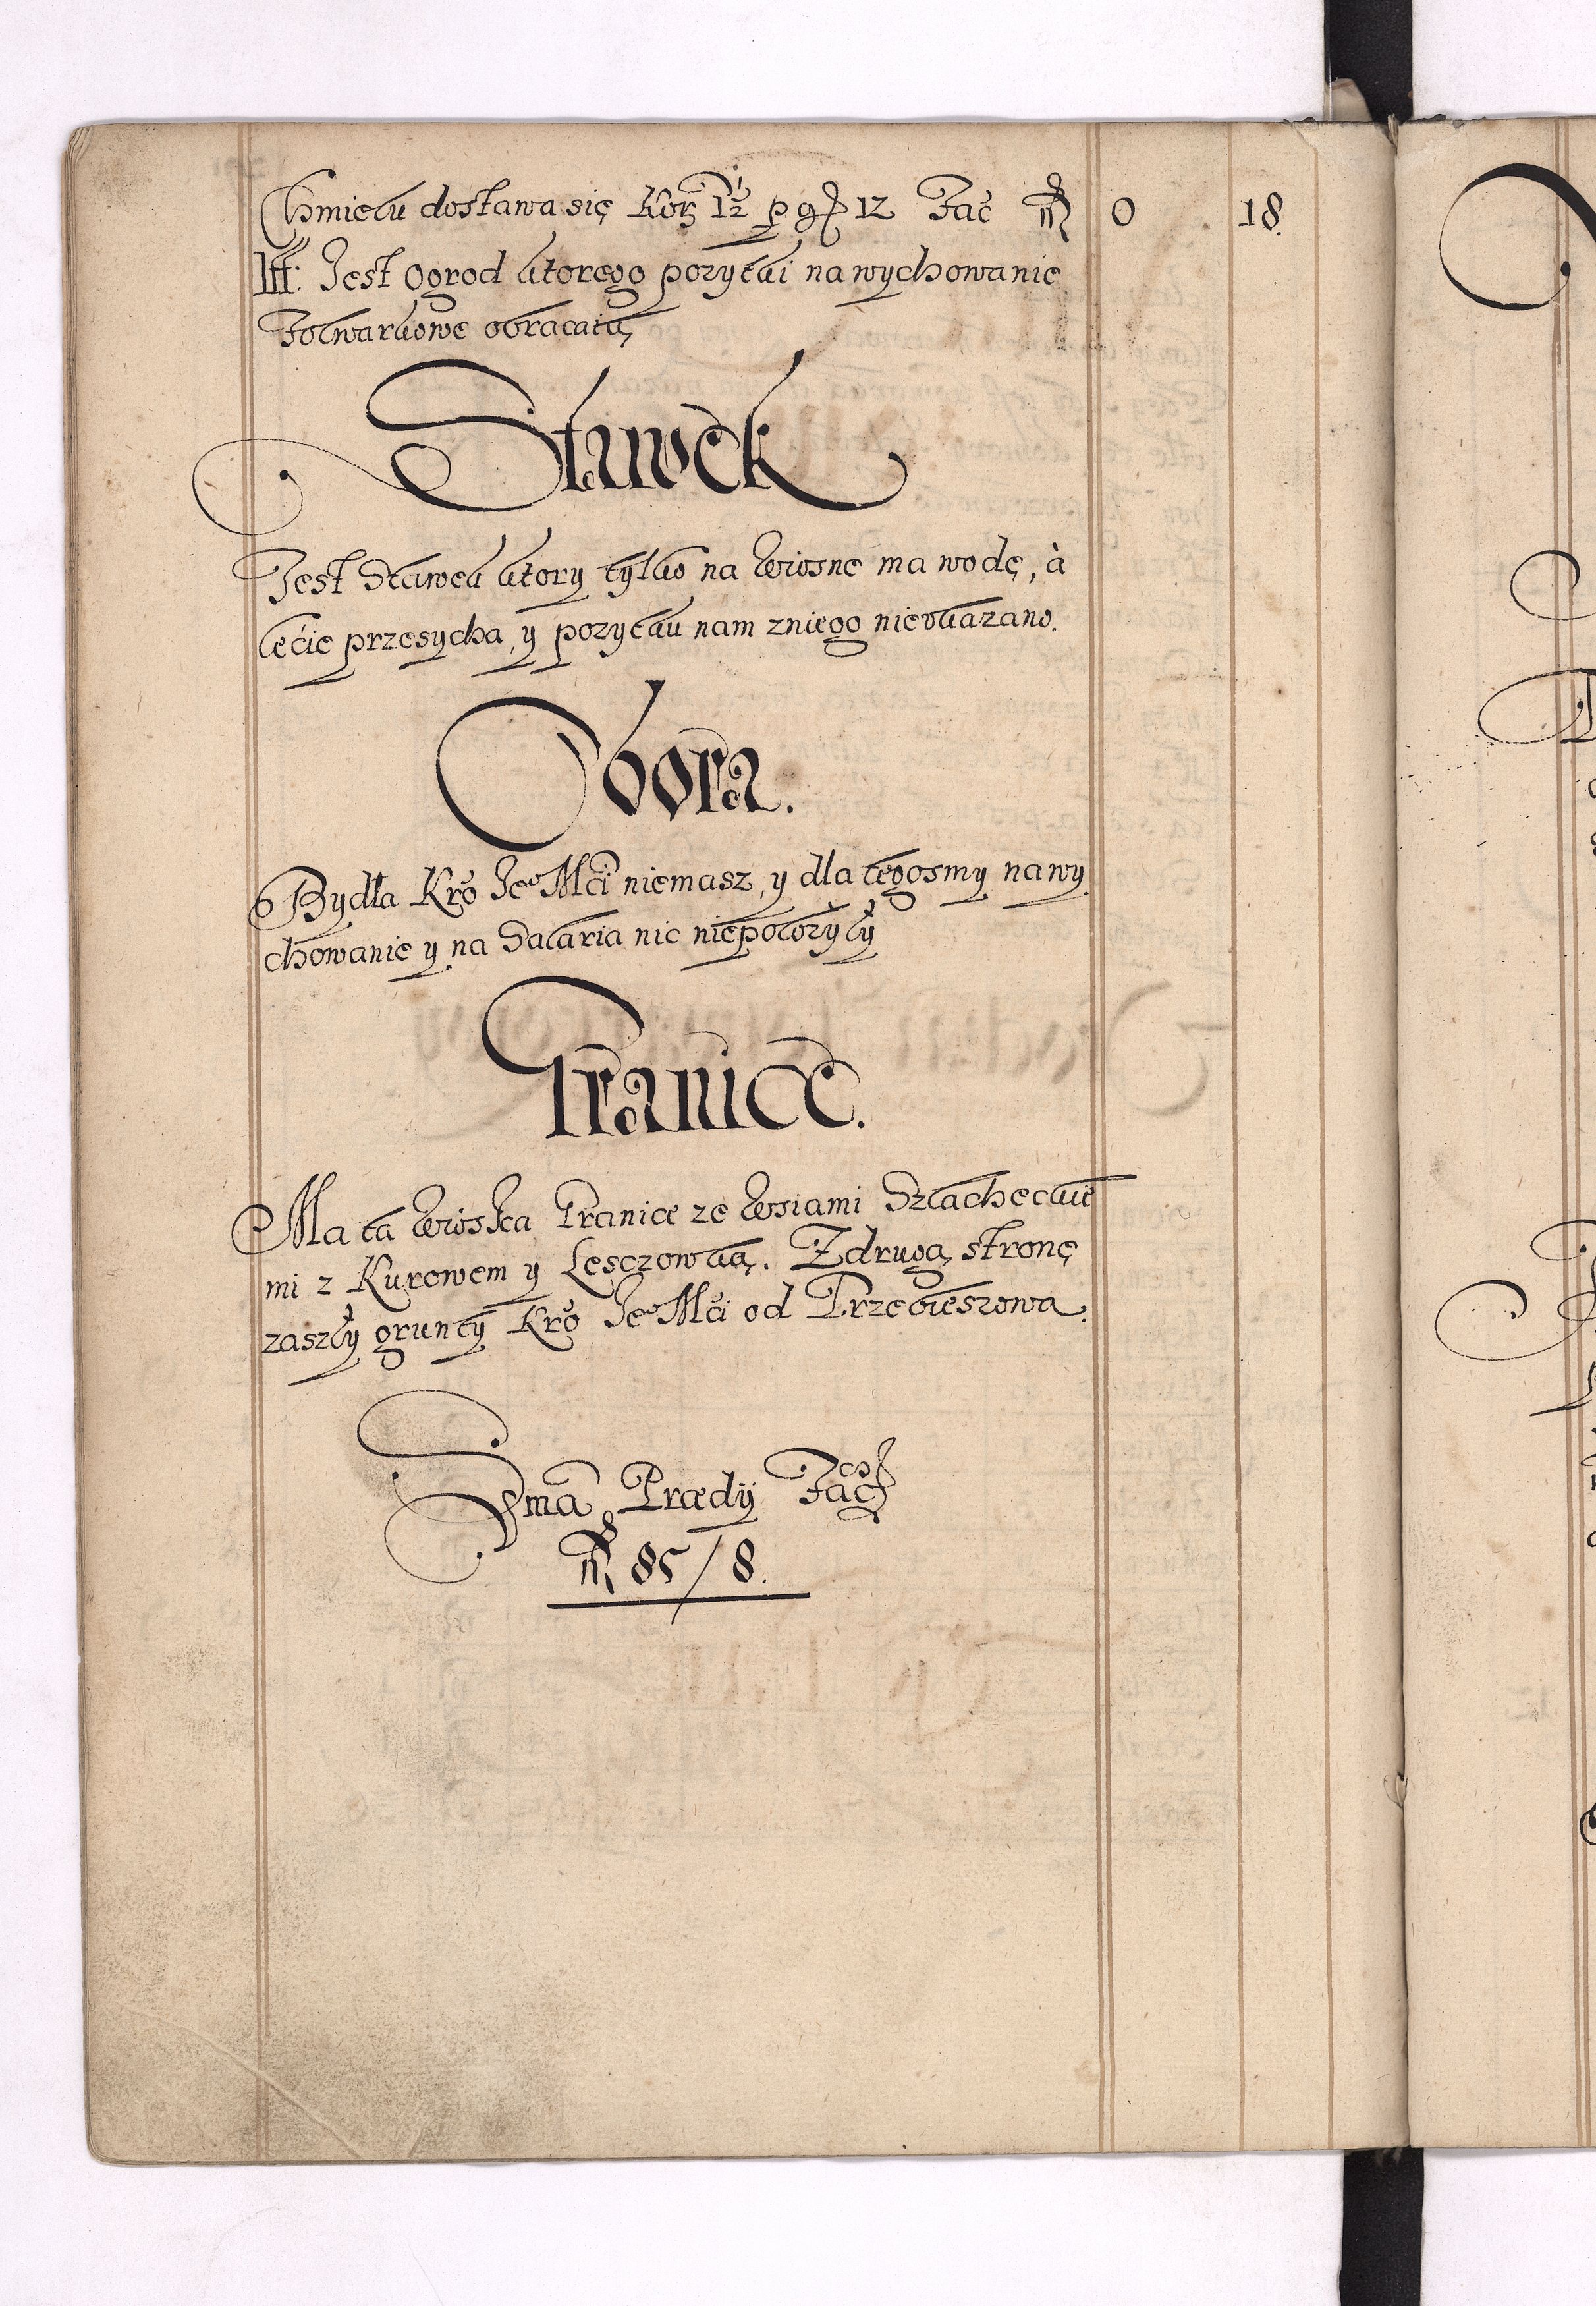 Chmielu dostawa się Korz 1½ p gr 12 Fac fl 0 18.
Itt: Jest Ogrod ktorego pozytki na wychowanie
Folwarkowe obracaią
Stawek
Jest Stawek ktory tylko na Wiosnę ma wodę, à
lecie przesycha, y pozytku nam zniego nieukazano.
Obora.
Bydła Kro Jeo Mci niemasz, y dla tegosmy na wy
chowanie y na Salaria nic niepołozyły
Granice.
Ma ta Wioska Granice ze Wsiami Szlacheckie
mi z Kurowem y Lesczowką. Z drugą stronę
zaszły grunty Kro Jeo Mci od Przebieszowa.
Sma Prædÿ Fac
fl 85/8.